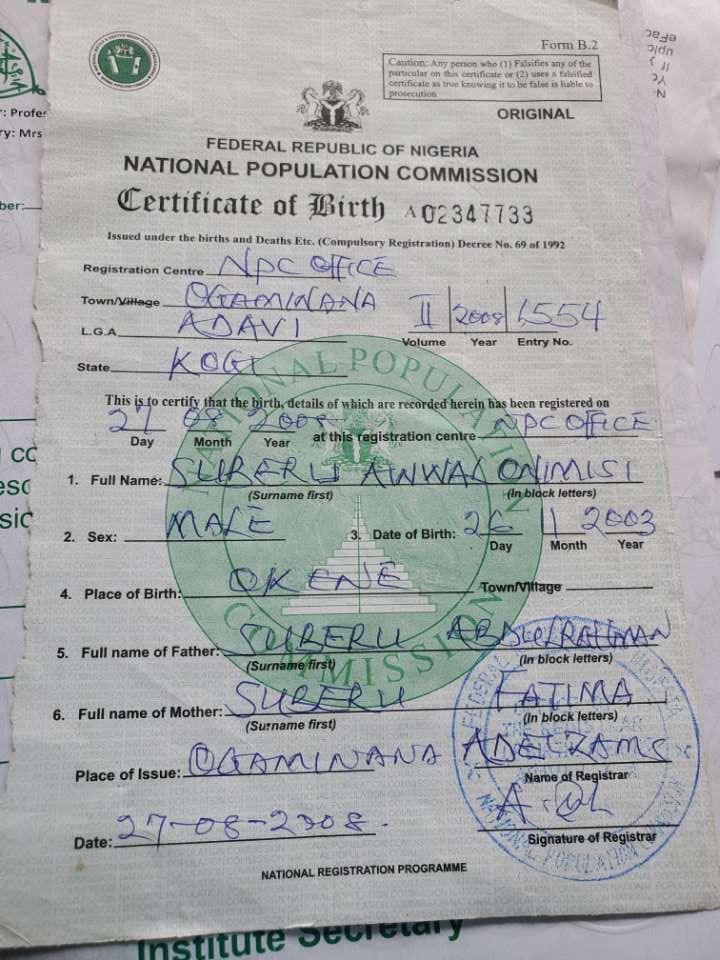 Form B.2
Caution: Any person who (1) Falsifies any of the
particular on this certificate or (2) uses a falsified
certificate as true knowing it to be false is liable to
prosecution
ORIGINAL
FEDERAL REPUBLIC OF NIGERIA
NATIONAL POPULATION COMMISSION
Certificate of Birth A 02347733
Issued under the births and Deaths Etc. (Compulsory Registration) Decree No. 69 of 1992
Registration Centre NPC OFFICE
Town/Village OGAMINANA
L.G.A ADAVI
II 2008 1554
Volume Year Entry No.
State KOGI
This is to certify that the birth, details of which are recorded herein has been registered on
27 08 2008 at this registration centre NPC OFFICE
Day Month Year
1. Full Name: SUBERU AWWAL ONIMISI
(Surname first) (In block letters)
2. Sex: MALE 3. Date of Birth: 26 11 2003
Day Month Year
4. Place of Birth: OKENE Town/Village
5. Full name of Father: SUBERU ABDULRAHMAN
(Surname first) (In block letters)
6. Full name of Mother: SUBERU FATIMA
(Surname first) (In block letters)
Place of Issue: OGAMINANA
Name of Registrar
Date: 27-08-2008.
Signature of Registrar
NATIONAL REGISTRATION PROGRAMME
NATIONAL POPULATION COMMISSION
Institute Secretary